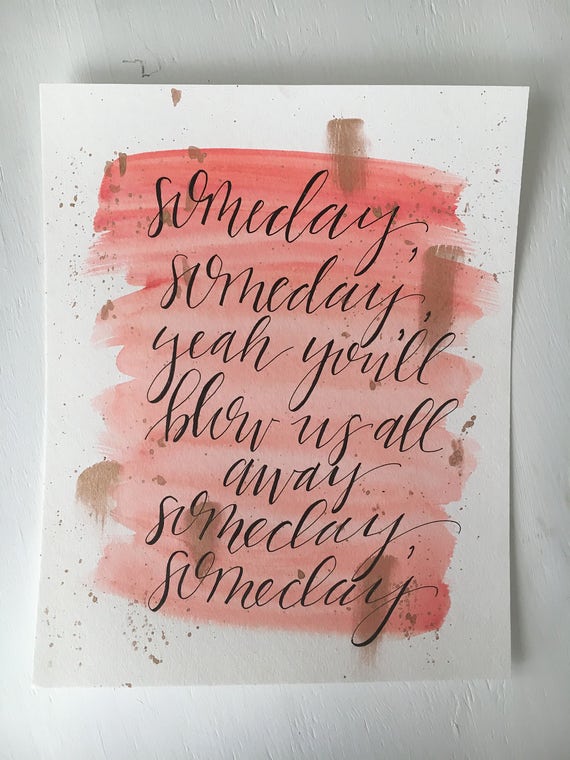 someday,
someday,
yeah you'll
blow us all
away
someday,
someday